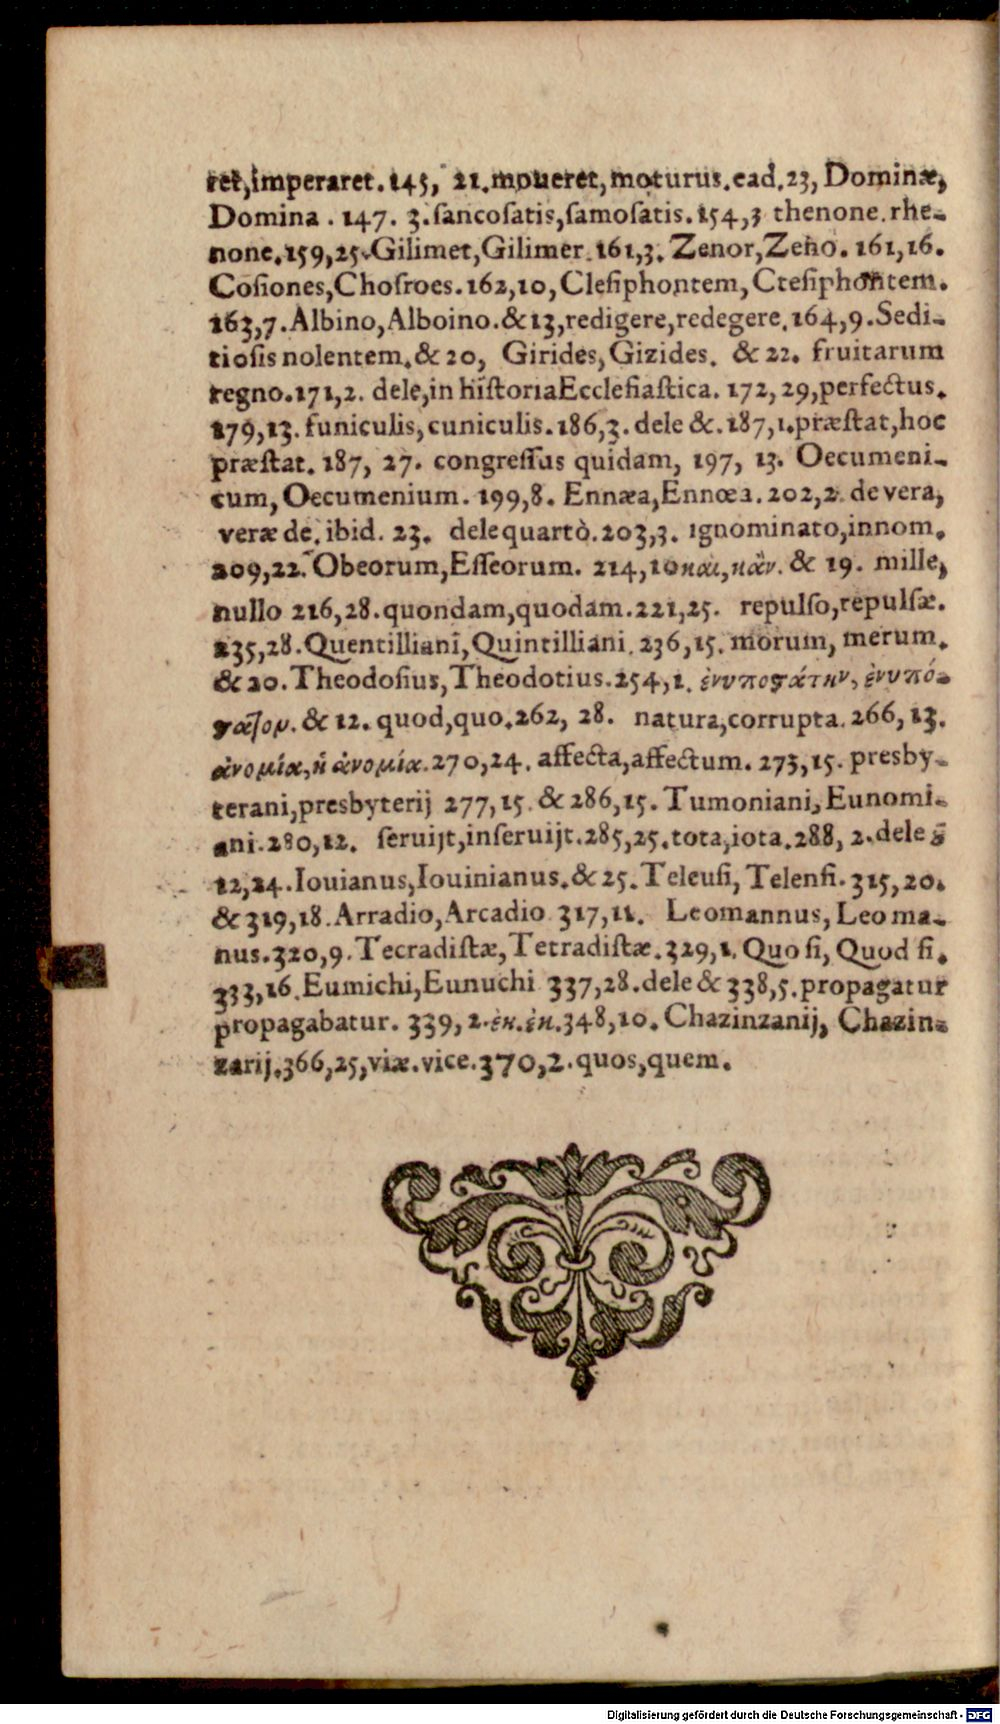 ret,imperaret.145, 21.moueret,moturus.ead.23, Dominæ,
Domina . 147. 3.sancosatis,samosatis.154,3 thenone.rhe-
none.159,25.Gilimet,Gilimer.161,3. Zenor,Zeno. 161,16.
Cosiones,Chosroes.162,10,Clesiphontem,Ctesiphontem.
163,7.Albino,Alboino.&13,redigere,redegere.164,9.Sedi-
tiosis nolentem.& 20, Girides,Gizides. & 22. fruitarum
regno.171,2. dele,in historia Ecclesiastica. 172,29,perfectus.
179,13. funiculis,cuniculis.186,3. dele &.187,1.præstat,hoc
præstat. 187, 27. congressus quidam, 197, 13. Oecumeni-
cum,Oecumenium. 199,8. Ennæa,Ennœa.202,2. de vera,
veræ de. ibid. 23. dele quartò.203,3. ignominato,innom.
209,22. Obeorum,Esseorum. 214,10 και,κἂν. & 19. mille,
nullo 216,28.quondam,quodam.221,25. repulso,repulsæ.
235,28.Quentilliani,Quintilliani.236,15.morum,merum.
& 20.Theodosius,Theodotius.254,1. ἐνυποςάτην,ἐνυπό-
ςατον.& 12. quod,quo.262, 28. natura,corrupta.266,13.
ἀνομία,ἡ ἀνομία.270,24. affecta,affectum. 273,15. presby-
terani,presbyterij 277,15. & 286,15. Tumoniani,Eunomi-
ani.280,12. seruijt,inseruijt.285,25.tota,iota.288, 2.dele
12,24.Iouianus,Iouinianus.& 25. Teleusi, Telensi. 315,20.
& 319,18. Arradio,Arcadio 317,11. Leomannus, Leoma-
nus.320,9. Tecradistæ,Tetradistæ.329,1.Quo si, Quod si.
333,16.Eumichi,Eunuchi 337,28.dele & 338,5.propagatur
propagabatur. 339,2.ἐκ.ἐκ.348,10. Chazinzanij, Chazin-
zarij.366,25,viæ.vice.370,2.quos,quem.
Digitalisierung gefördert durch die Deutsche Forschungsgemeinschaft - DFG